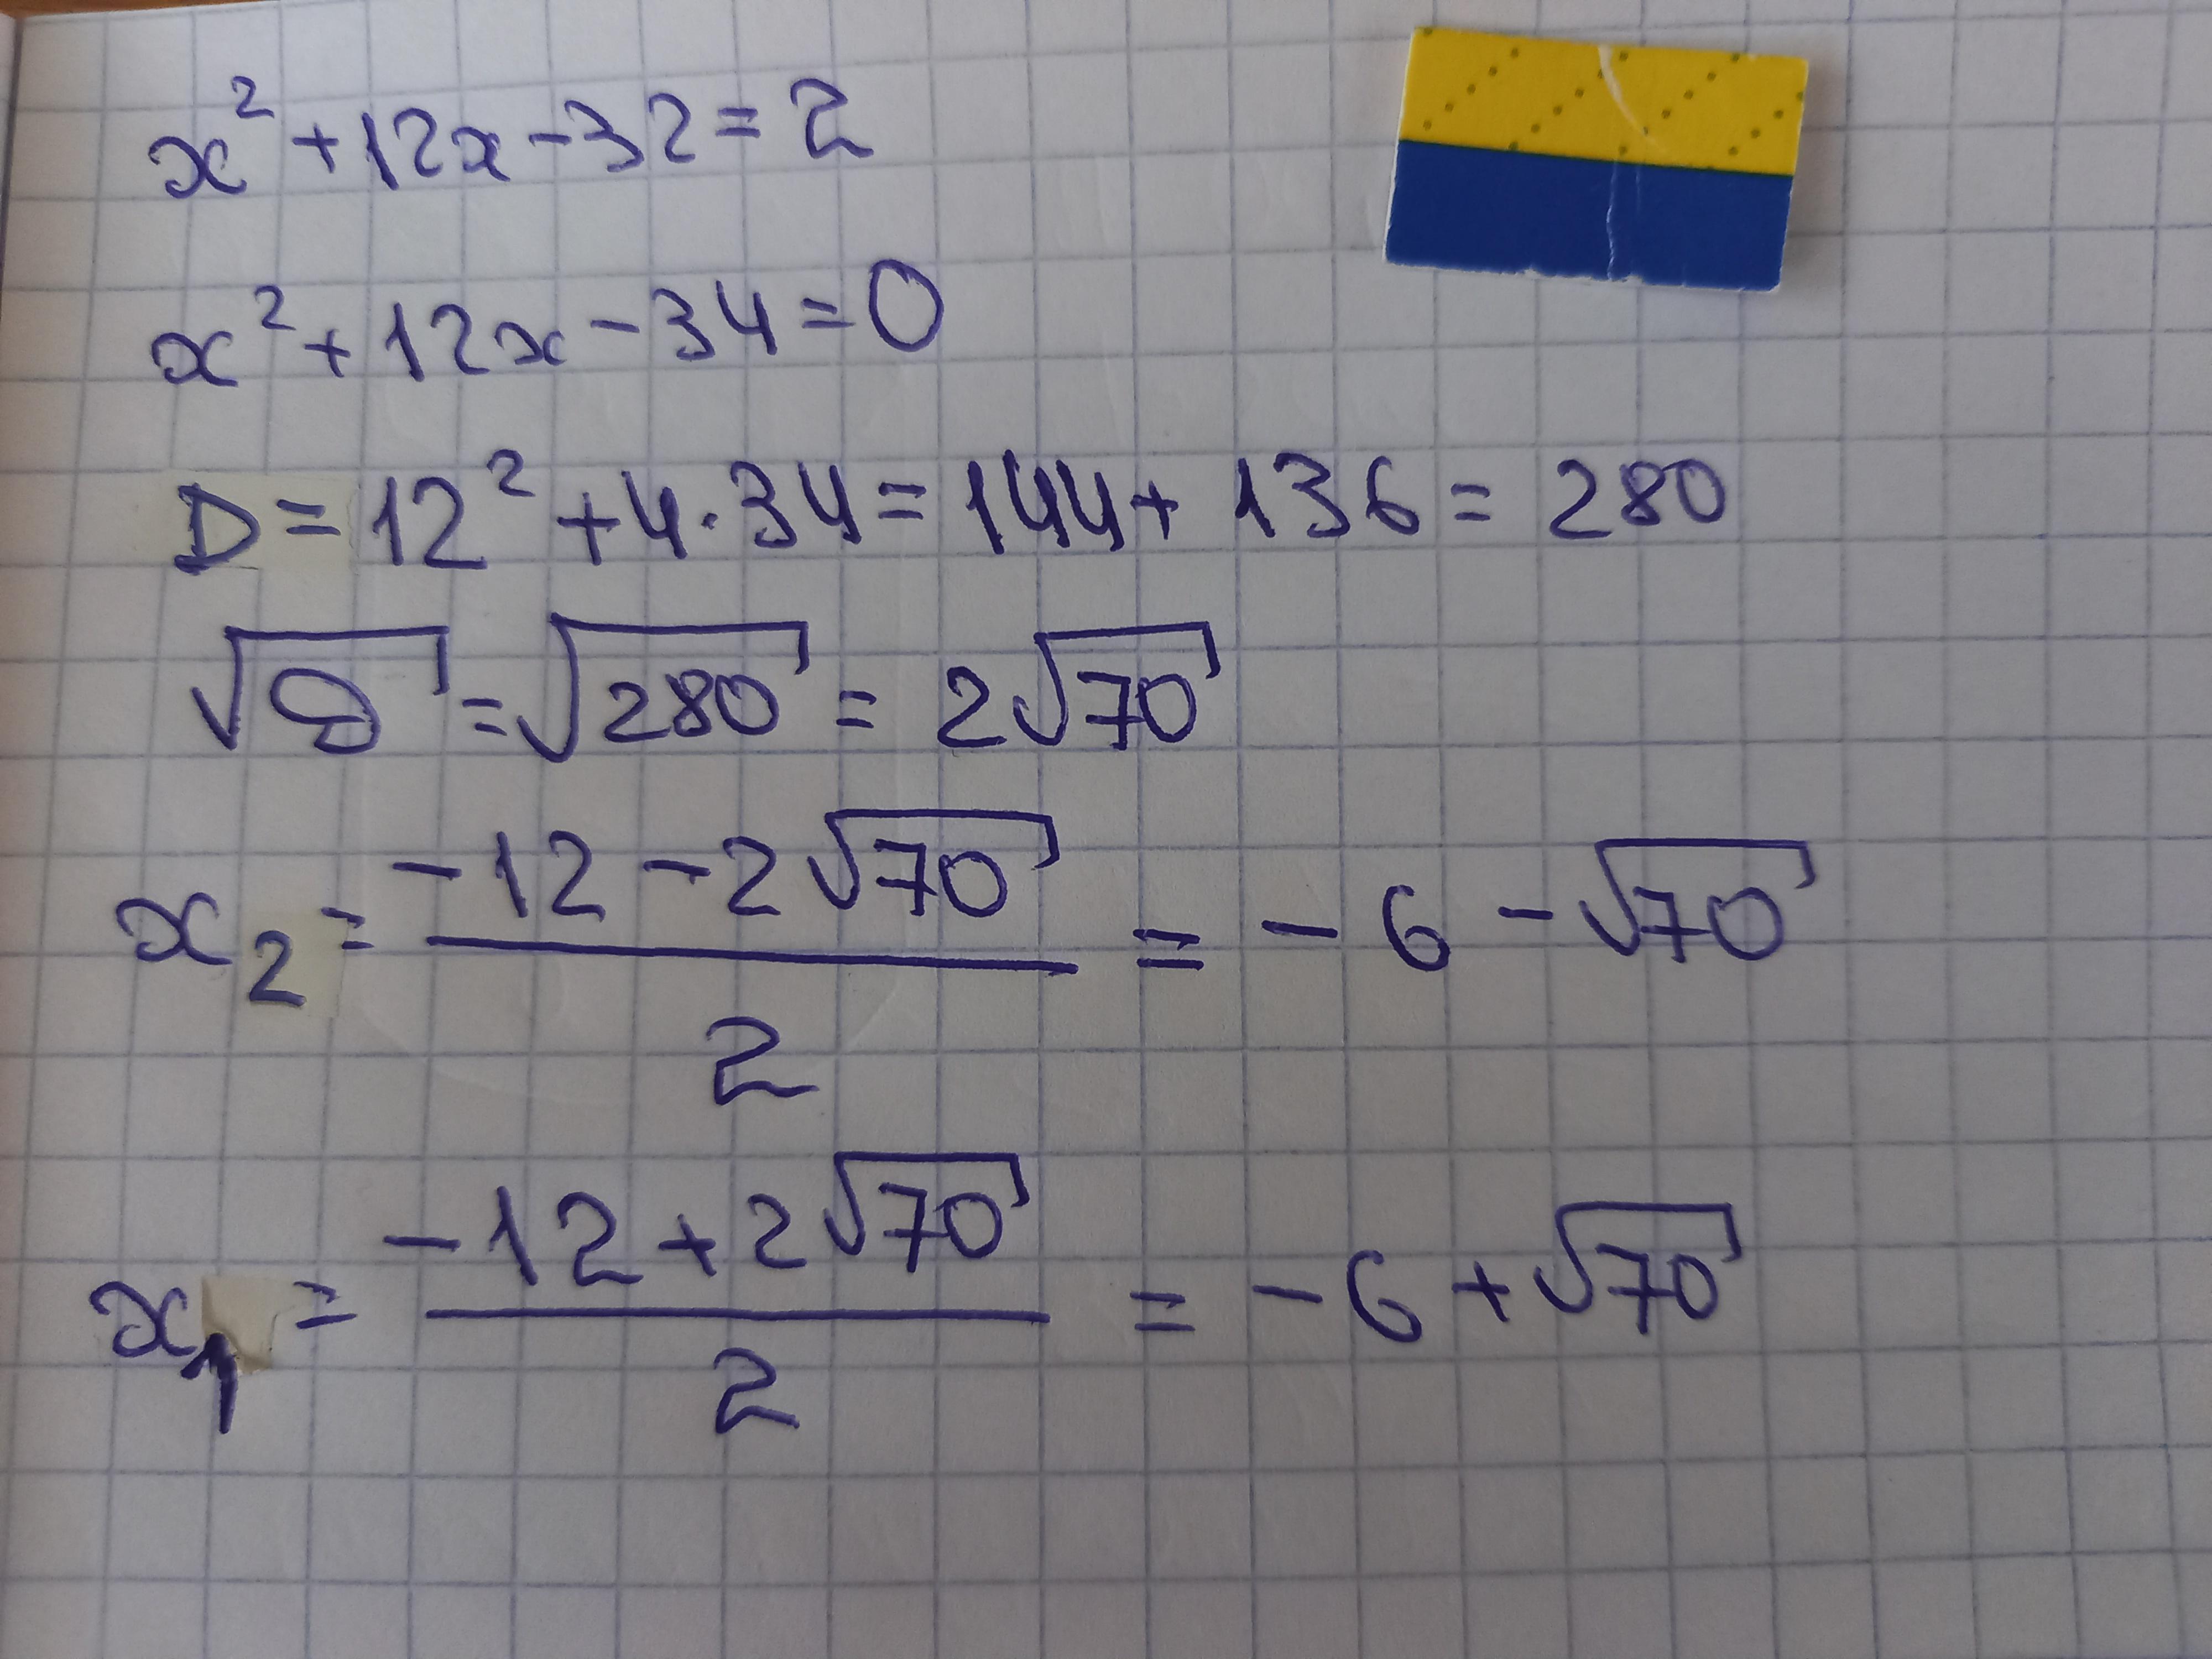 x² + 12x - 32 = 2
x² + 12x - 34 = 0
D = 12² + 4·34 = 144 + 136 = 280
√D = √280 = 2√70
x₂ = (-12 - 2√70)/2 = -6 - √70
x₁ = (-12 + 2√70)/2 = -6 + √70